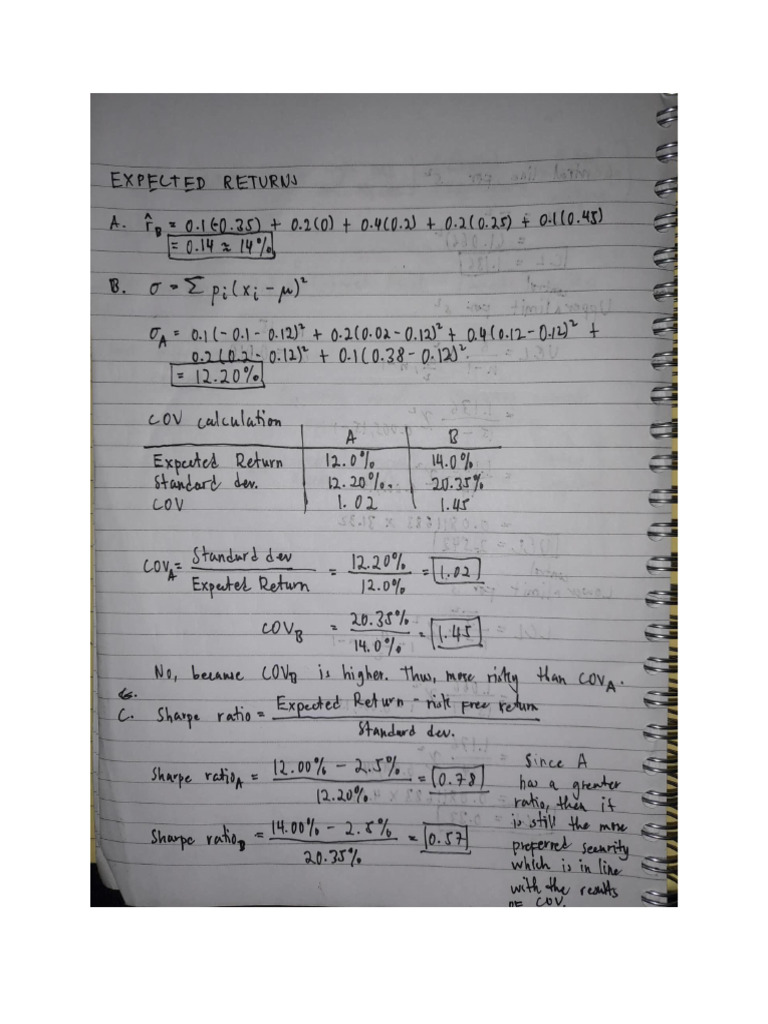 EXPECTED RETURNS
A. r̂B = 0.1(-0.35) + 0.2(0) + 0.4(0.2) + 0.2(0.25) + 0.1(0.45)
= 0.14 ≈ 14%
B. σ = Σ pi(xi - μ)²
σA = 0.1(-0.1 - 0.12)² + 0.2(0.02 - 0.12)² + 0.4(0.12 - 0.12)² +
0.2(0.2 - 0.12)² + 0.1(0.38 - 0.12)².
= 12.20%
COV calculation
A B
Expected Return 12.0% 14.0%
Standard dev. 12.20% 20.35%
COV 1.02 1.45
COVA = Standard dev / Expected Return = 12.20% / 12.0% = 1.02
COVB = 20.35% / 14.0% = 1.45
No, because COVB is higher. Thus, more risky than COVA.
C. Sharpe ratio = Expected Return - risk free return / Standard dev.
Sharpe ratioA = 12.00% - 2.5% / 12.20% = 0.78
Sharpe ratioB = 14.00% - 2.5% / 20.35% = 0.57
Since A
has a greater
ratio, then it
is still the more
preferred security
which is in line
with the results
OF COV.